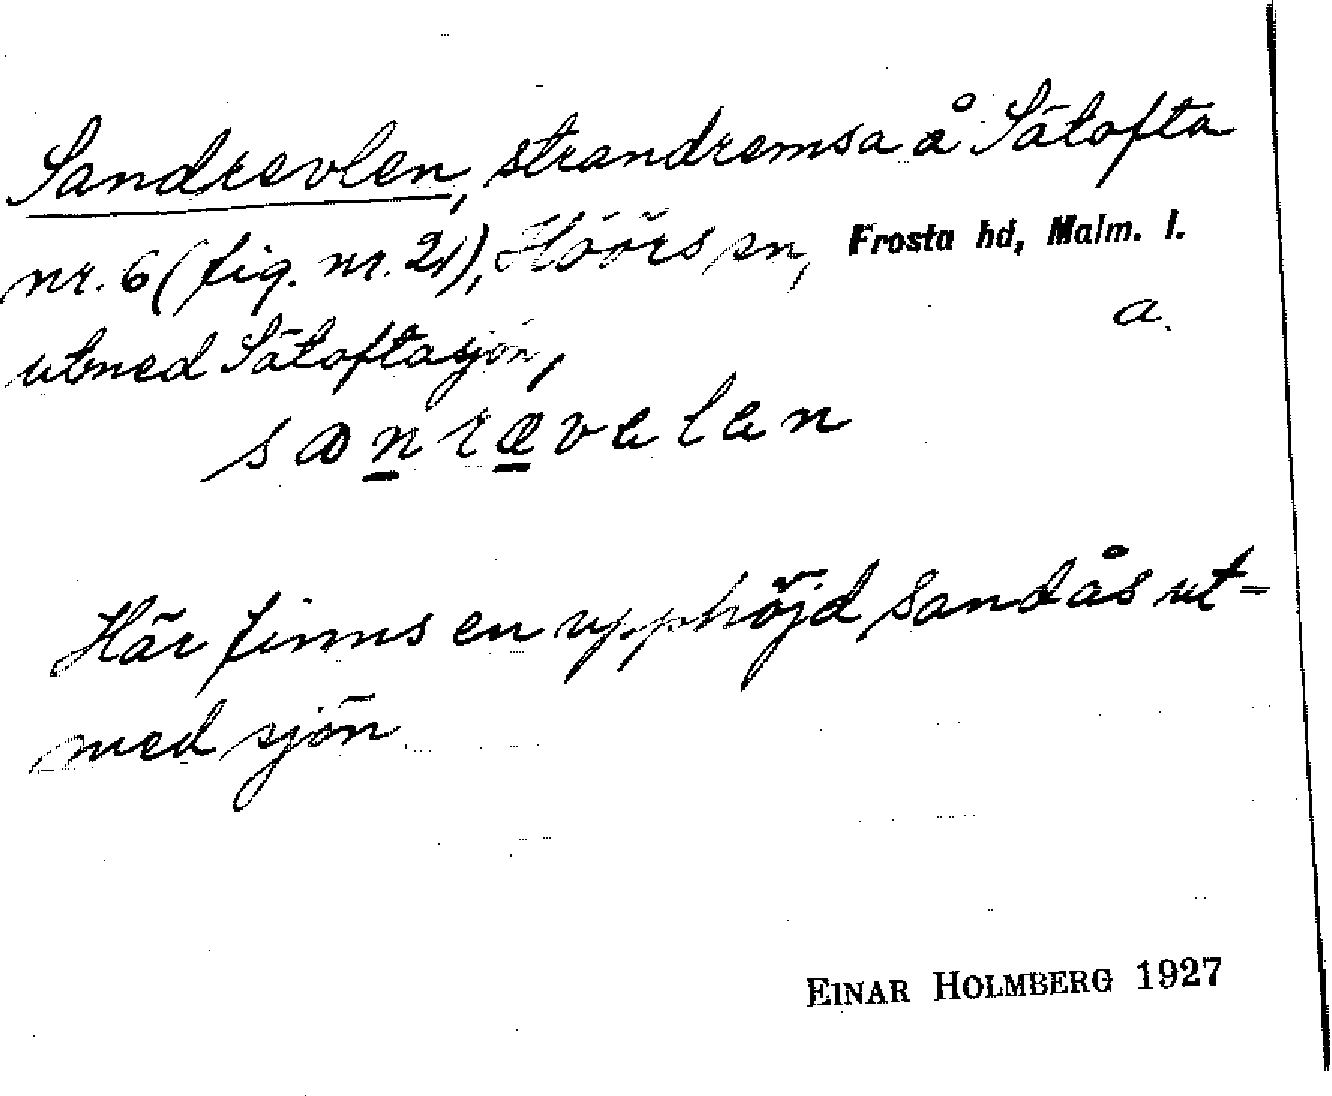 Sandrevlen, strandremsa å Sätofta
nr. 6 (fig. nr. 21), Höörs sn, Frosta hd, Malm. l.
a.
utmed Sätoftasjön,
Här finns en upphöjd sandås ut-
med sjön
EINAR HOLMBERG 1927